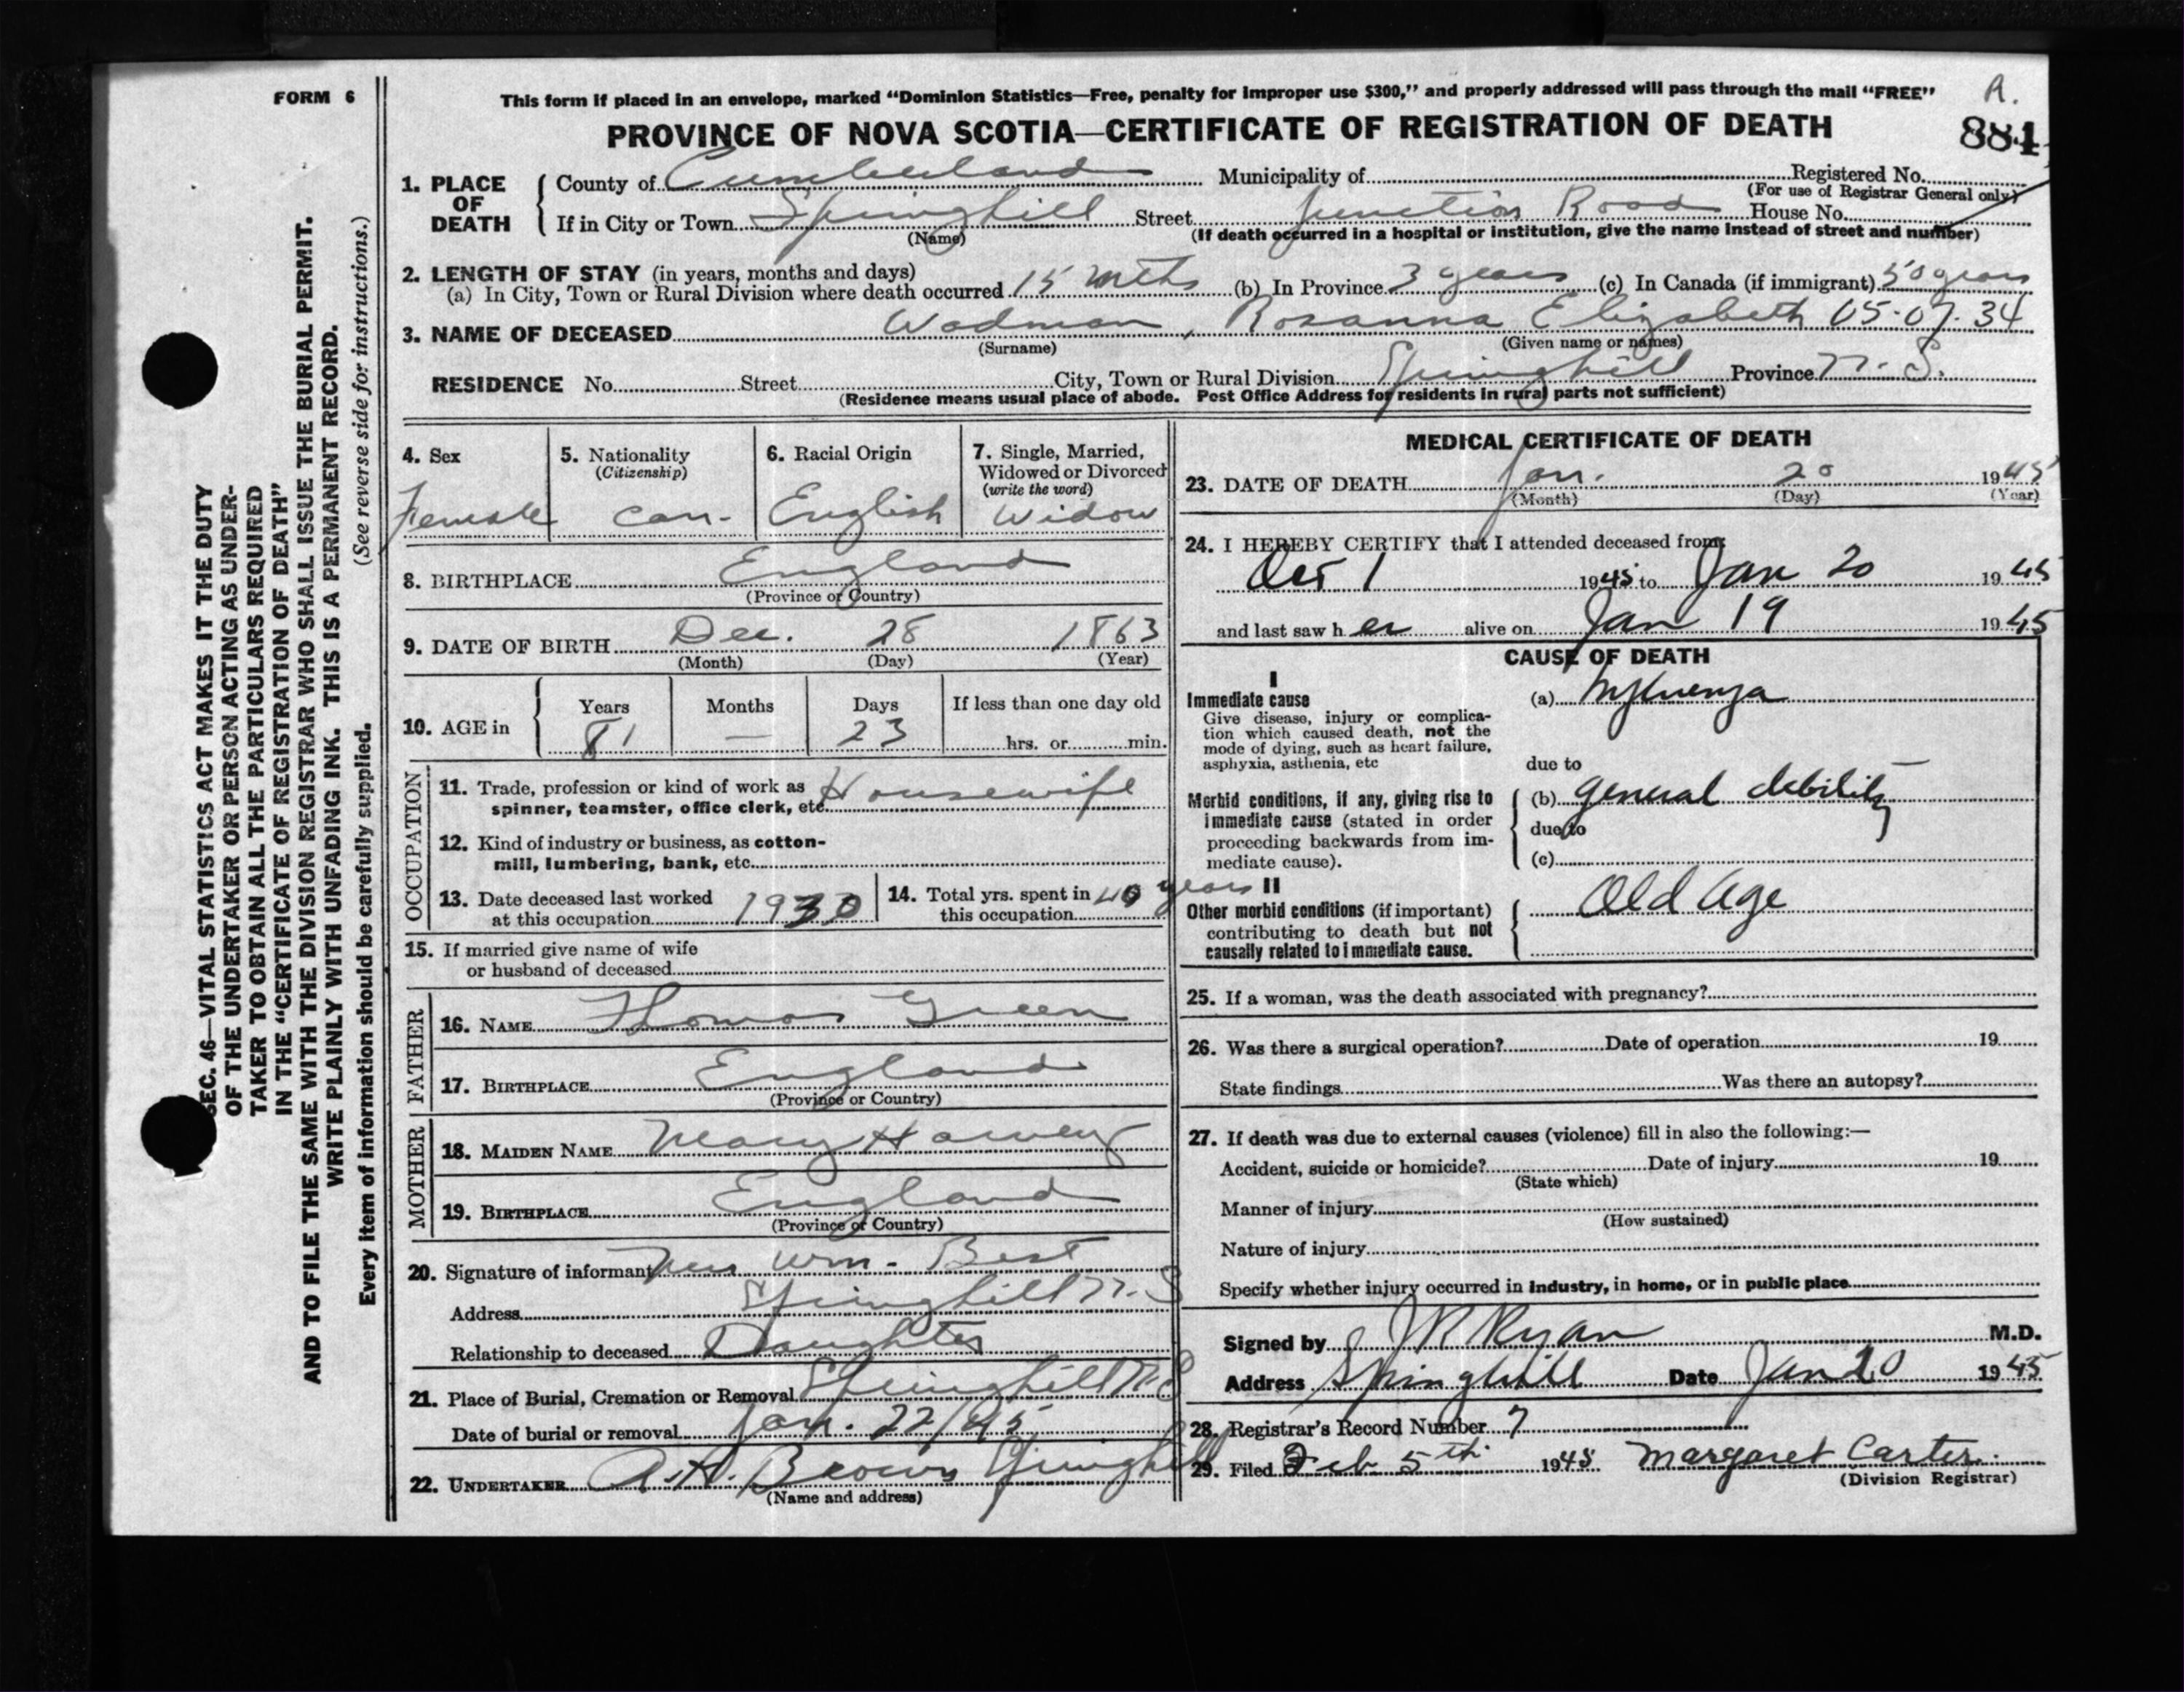 FORM 6
This form if placed in an envelope, marked “Dominion Statistics—Free, penalty for improper use $300,” and properly addressed will pass through the mail “FREE”
A.
PROVINCE OF NOVA SCOTIA—CERTIFICATE OF REGISTRATION OF DEATH
884
1. PLACE OF DEATH
County of Cumberland Municipality of Registered No.
(For use of Registrar General only)
If in City or Town Springhill Street Junction Road House No.
(Name) (If death occurred in a hospital or institution, give the name instead of street and number)
2. LENGTH OF STAY (in years, months and days)
(a) In City, Town or Rural Division where death occurred 15 mths (b) In Province 3 years (c) In Canada (if immigrant) 50 years
3. NAME OF DECEASED Wadman, Rosanna Elizabeth 05-07-34
(Surname) (Given name or names)
RESIDENCE No. Street City, Town or Rural Division Springhill Province N.S.
(Residence means usual place of abode. Post Office Address for residents in rural parts not sufficient)
4. Sex
Female
5. Nationality
(Citizenship)
Can.
6. Racial Origin
English
7. Single, Married,
Widowed or Divorced
(write the word)
Widow
8. BIRTHPLACE England
(Province or Country)
9. DATE OF BIRTH Dec. 28 1863
(Month) (Day) (Year)
10. AGE in
Years Months Days If less than one day old
81 — 23 hrs. or min.
OCCUPATION
11. Trade, profession or kind of work as
spinner, teamster, office clerk, etc. Housewife
12. Kind of industry or business, as cotton-
mill, lumbering, bank, etc.
13. Date deceased last worked
at this occupation 1930
14. Total yrs. spent in
this occupation 40 years
15. If married give name of wife
or husband of deceased
FATHER
16. NAME Thomas Green
17. BIRTHPLACE England
(Province or Country)
MOTHER
18. MAIDEN NAME Mary Harvey
19. BIRTHPLACE England
(Province or Country)
20. Signature of informant Mrs Wm. Best
Address Springhill N.S
Relationship to deceased Daughter
21. Place of Burial, Cremation or Removal Springhill N.S
Date of burial or removal Jan. 22/45
22. UNDERTAKER A.H. Brown Springhill
(Name and address)
MEDICAL CERTIFICATE OF DEATH
23. DATE OF DEATH Jan. 20 1945
(Month) (Day) (Year)
24. I HEREBY CERTIFY that I attended deceased from:
Oct 1 1945 to Jan 20 1945
and last saw her alive on Jan 19 1945
CAUSE OF DEATH
I
Immediate cause
Give disease, injury or complica-
tion which caused death, not the
mode of dying, such as heart failure,
asphyxia, asthenia, etc
(a) Influenza
due to
Morbid conditions, if any, giving rise to
immediate cause (stated in order
proceeding backwards from im-
mediate cause).
(b) general debility
due to
(c)
II
Other morbid conditions (if important)
contributing to death but not
causally related to immediate cause.
Old Age
25. If a woman, was the death associated with pregnancy?
26. Was there a surgical operation? Date of operation 19
State findings Was there an autopsy?
27. If death was due to external causes (violence) fill in also the following:—
Accident, suicide or homicide? Date of injury 19
(State which)
Manner of injury
(How sustained)
Nature of injury
Specify whether injury occurred in industry, in home, or in public place
Signed by J R Ryan M.D.
Address Springhill Date Jan 20 1945
28. Registrar's Record Number 7
29. Filed Feb 5th 1945 Margaret Carter
(Division Registrar)
SEC. 46—VITAL STATISTICS ACT MAKES IT THE DUTY
OF THE UNDERTAKER OR PERSON ACTING AS UNDER-
TAKER TO OBTAIN ALL THE PARTICULARS REQUIRED
IN THE “CERTIFICATE OF REGISTRATION OF DEATH”
AND TO FILE THE SAME WITH THE DIVISION REGISTRAR WHO SHALL ISSUE THE BURIAL PERMIT.
WRITE PLAINLY WITH UNFADING INK. THIS IS A PERMANENT RECORD.
Every item of information should be carefully supplied. (See reverse side for instructions.)